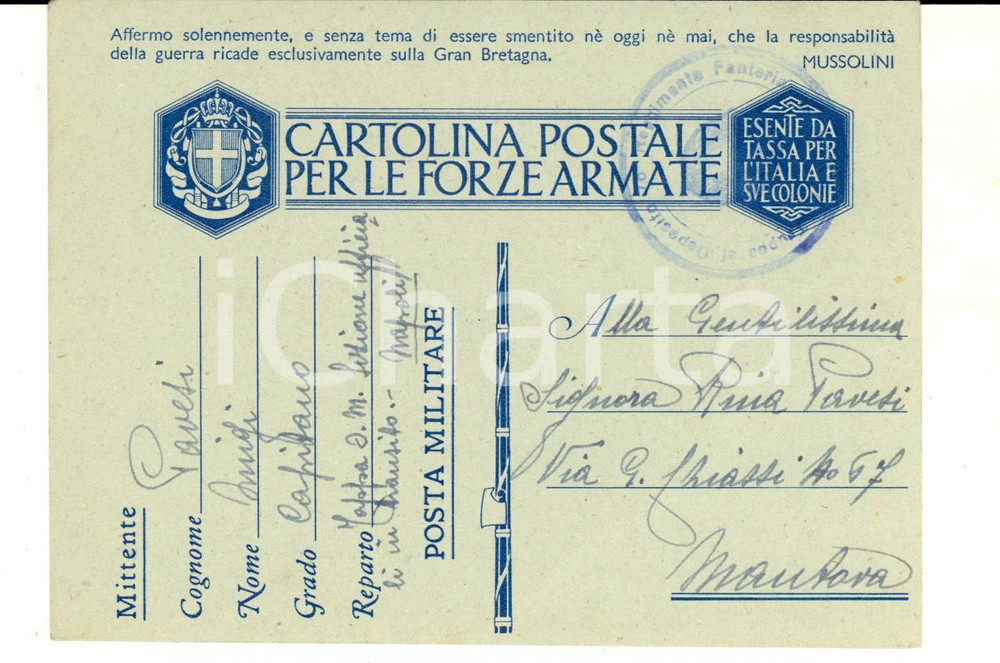 Affermo solennemente, e senza tema di essere smentito nè oggi nè mai, che la responsabilità
della guerra ricade esclusivamente sulla Gran Bretagna.
MUSSOLINI
CARTOLINA POSTALE
PER LE FORZE ARMATE
ESENTE DA
TASSA PER
L'ITALIA E
SVE COLONIE
Reggimento Fanteria
Deposito
Mittente
Cognome Pavesi
Nome Luigi
Grado Capitano
Reparto Tappa S. M. Sezione ufficia
li in transito.- Napoli
POSTA MILITARE
Alla Gentilissima
Signora Rina Pavesi
Via G. Chiassi No 67
Mantova
iCharta